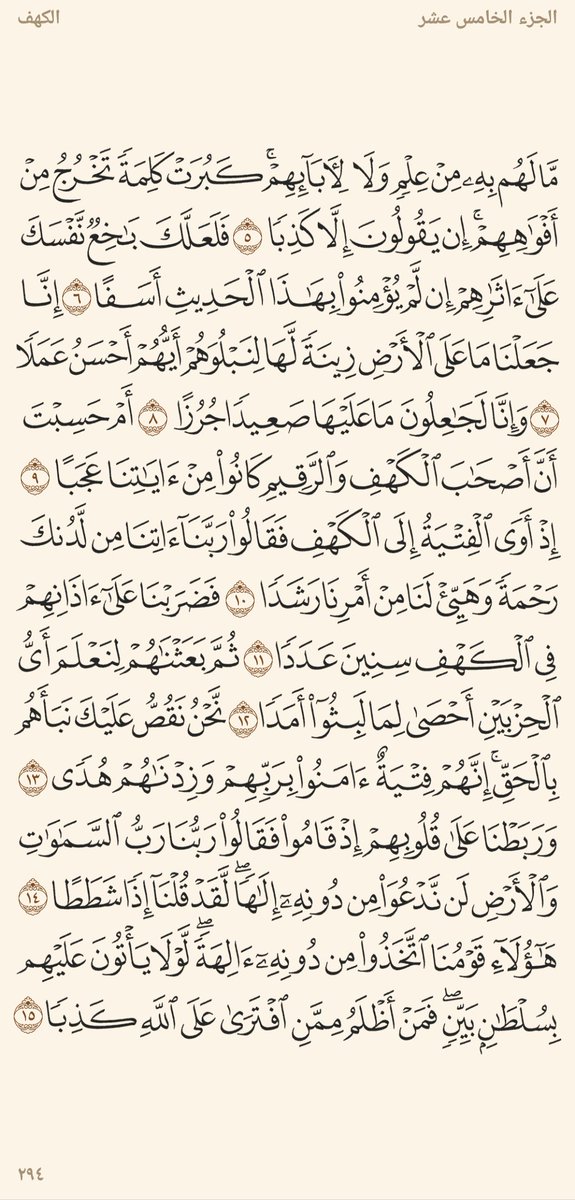 الجزء الخامس عشر
الكهف
مَّا لَهُم بِهِۦ مِنْ عِلْمٍ وَلَا لِـَٔابَآئِهِمْ ۚ كَبُرَتْ كَلِمَةً تَخْرُجُ مِنْ
أَفْوَٰهِهِمْ ۚ إِن يَقُولُونَ إِلَّا كَذِبًا ٥ فَلَعَلَّكَ بَـٰخِعٌ نَّفْسَكَ
عَلَىٰٓ ءَاثَـٰرِهِمْ إِن لَّمْ يُؤْمِنُوا۟ بِهَـٰذَا ٱلْحَدِيثِ أَسَفًا ٦ إِنَّا
جَعَلْنَا مَا عَلَى ٱلْأَرْضِ زِينَةً لَّهَا لِنَبْلُوَهُمْ أَيُّهُمْ أَحْسَنُ عَمَلًا
٧ وَإِنَّا لَجَـٰعِلُونَ مَا عَلَيْهَا صَعِيدًا جُرُزًا ٨ أَمْ حَسِبْتَ
أَنَّ أَصْحَـٰبَ ٱلْكَهْفِ وَٱلرَّقِيمِ كَانُوا۟ مِنْ ءَايَـٰتِنَا عَجَبًا ٩
إِذْ أَوَى ٱلْفِتْيَةُ إِلَى ٱلْكَهْفِ فَقَالُوا۟ رَبَّنَآ ءَاتِنَا مِن لَّدُنكَ
رَحْمَةً وَهَيِّئْ لَنَا مِنْ أَمْرِنَا رَشَدًا ١٠ فَضَرَبْنَا عَلَىٰٓ ءَاذَانِهِمْ
فِى ٱلْكَهْفِ سِنِينَ عَدَدًا ١١ ثُمَّ بَعَثْنَـٰهُمْ لِنَعْلَمَ أَىُّ
ٱلْحِزْبَيْنِ أَحْصَىٰ لِمَا لَبِثُوٓا۟ أَمَدًا ١٢ نَّحْنُ نَقُصُّ عَلَيْكَ نَبَأَهُم
بِٱلْحَقِّ ۚ إِنَّهُمْ فِتْيَةٌ ءَامَنُوا۟ بِرَبِّهِمْ وَزِدْنَـٰهُمْ هُدًى ١٣
وَرَبَطْنَا عَلَىٰ قُلُوبِهِمْ إِذْ قَامُوا۟ فَقَالُوا۟ رَبُّنَا رَبُّ ٱلسَّمَـٰوَٰتِ
وَٱلْأَرْضِ لَن نَّدْعُوَا۟ مِن دُونِهِۦٓ إِلَـٰهًا ۖ لَّقَدْ قُلْنَآ إِذًا شَطَطًا ١٤
هَـٰٓؤُلَآءِ قَوْمُنَا ٱتَّخَذُوا۟ مِن دُونِهِۦٓ ءَالِهَةً ۖ لَّوْلَا يَأْتُونَ عَلَيْهِم
بِسُلْطَـٰنٍۭ بَيِّنٍ ۖ فَمَنْ أَظْلَمُ مِمَّنِ ٱفْتَرَىٰ عَلَى ٱللَّهِ كَذِبًا ١٥
٢٩٤